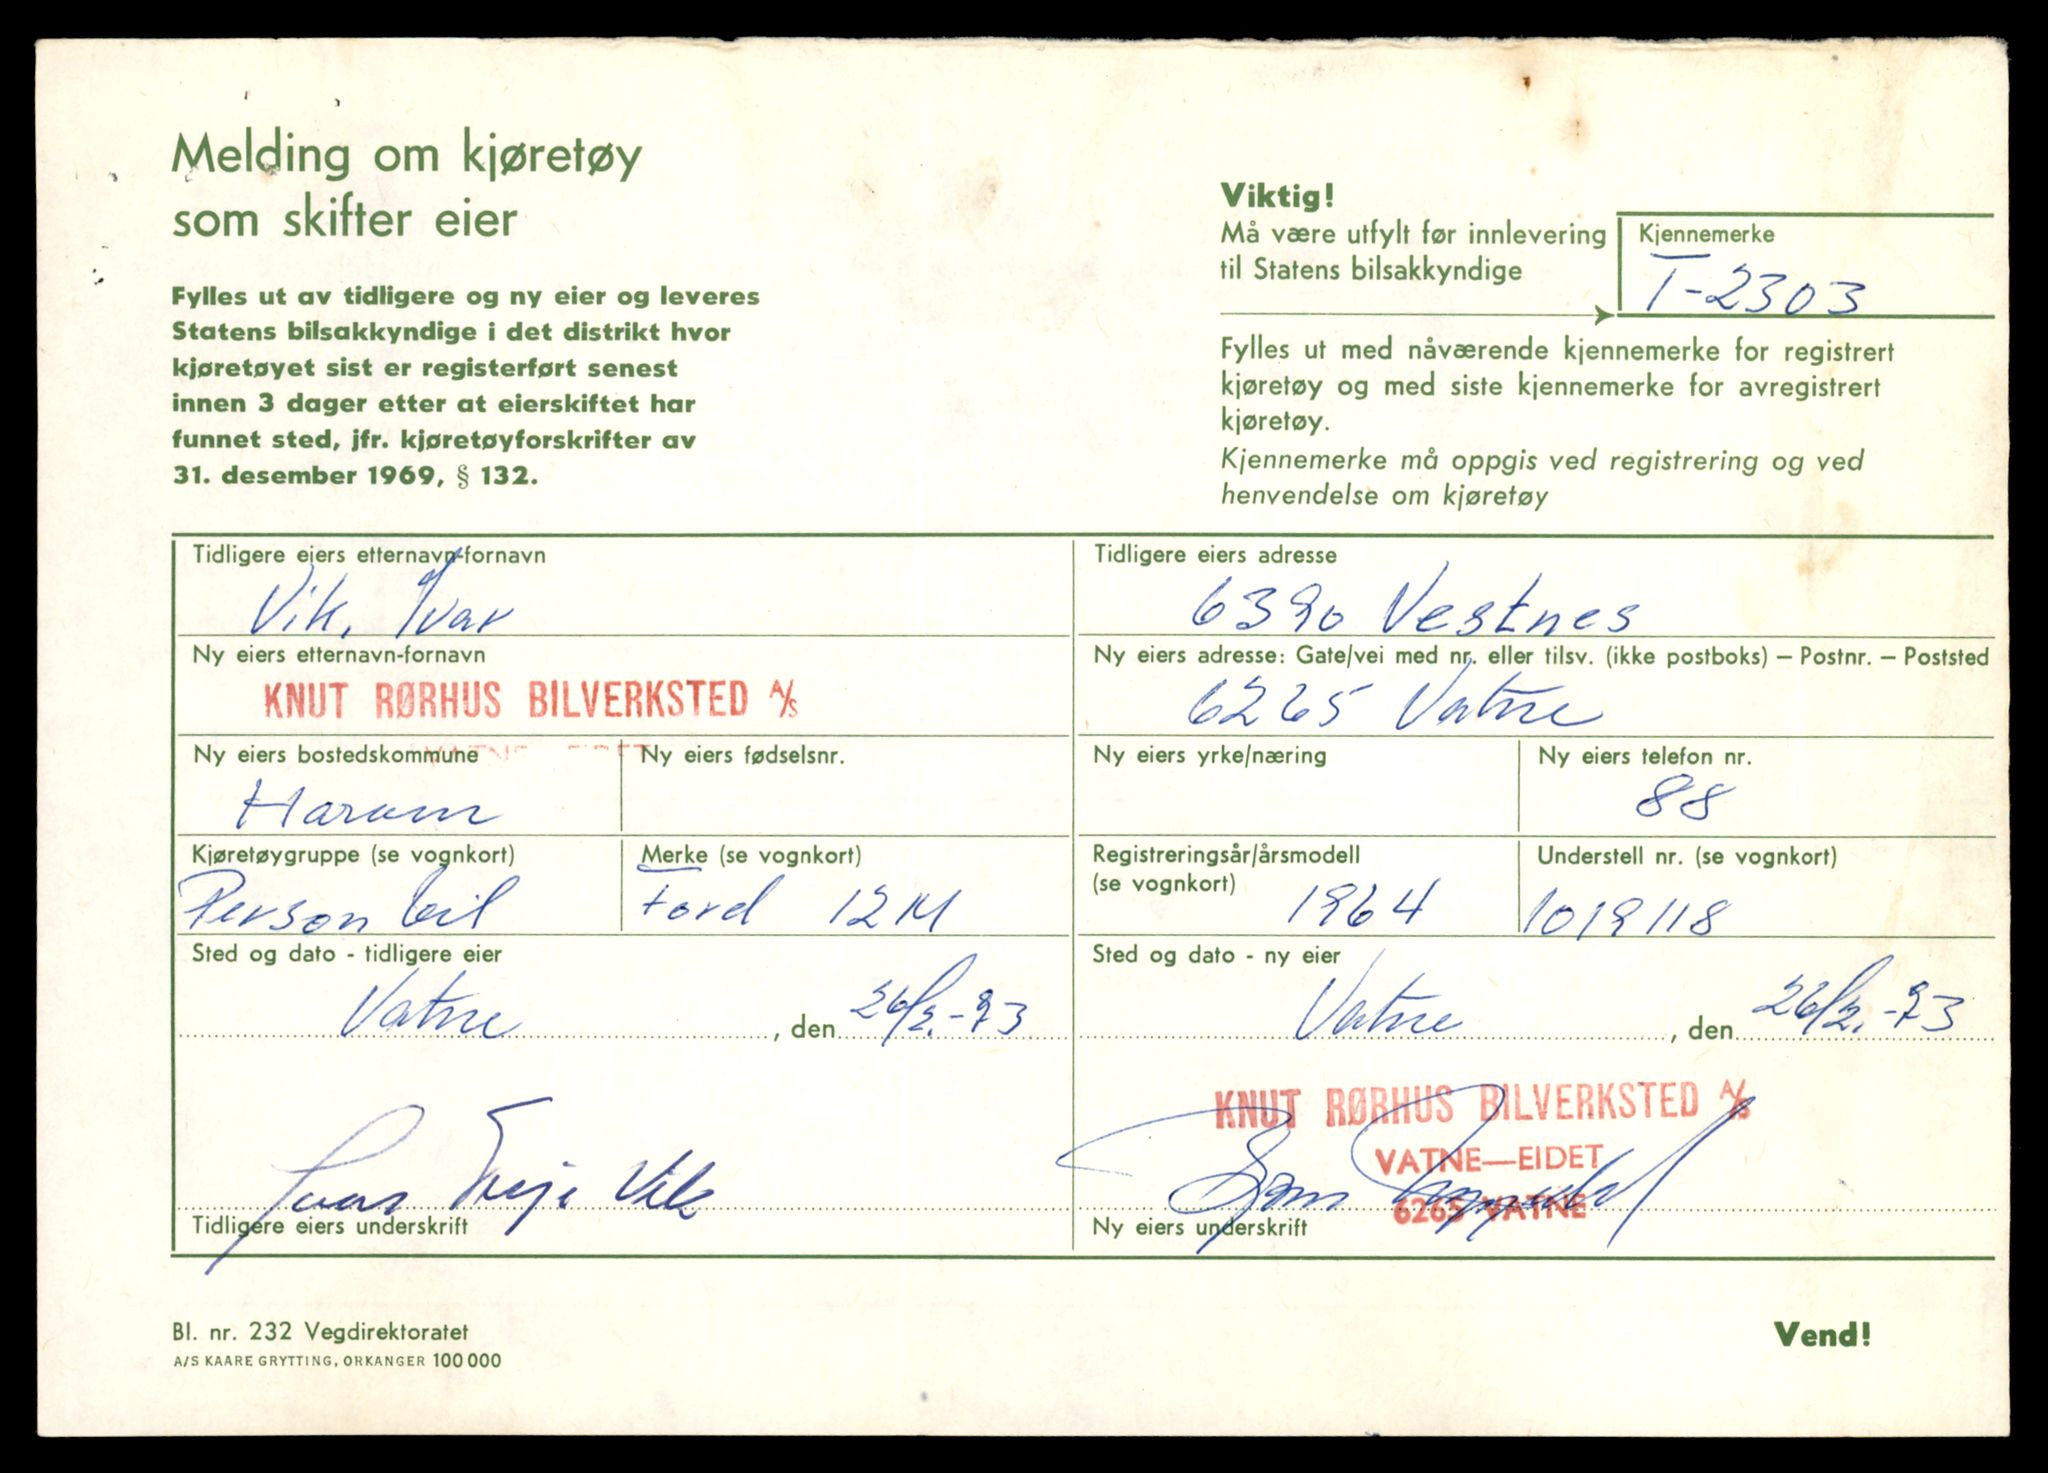 Melding om kjøretøy
som skifter eier
Fylles ut av tidligere og ny eier og leveres
Statens bilsakkyndige i det distrikt hvor
kjøretøyet sist er registerført senest
innen 3 dager etter at eierskiftet har
funnet sted, jfr. kjøretøyforskrifter av
31. desember 1969, § 132.
Viktig!
Må være utfylt før innlevering
til Statens bilsakkyndige
Kjennemerke
T-2303
Fylles ut med nåværende kjennemerke for registrert
kjøretøy og med siste kjennemerke for avregistrert
kjøretøy.
Kjennemerke må oppgis ved registrering og ved
henvendelse om kjøretøy
Tidligere eiers etternavn-fornavn
Vik, Ivar
Tidligere eiers adresse
6390 Vestnes
Ny eiers etternavn-fornavn
KNUT RØRHUS BILVERKSTED A/S
Ny eiers adresse: Gate/vei med nr. eller tilsv. (ikke postboks) – Postnr. – Poststed
6265 Vatne
Ny eiers bostedskommune
Haram
Ny eiers fødselsnr.
Ny eiers yrke/næring
Ny eiers telefon nr.
88
Kjøretøygruppe (se vognkort)
Person bil
Merke (se vognkort)
Ford 12M
Registreringsår/årsmodell
(se vognkort)
1964
Understell nr. (se vognkort)
1019118
Sted og dato - tidligere eier
Vatne, den 26/2.-73
Sted og dato - ny eier
Vatne, den 26/2.-73
Ivar Vik
Tidligere eiers underskrift
KNUT RØRHUS BILVERKSTED A/S
VATNE—EIDET
6265 VATNE
Ny eiers underskrift
Bl. nr. 232 Vegdirektoratet
A/S KAARE GRYTTING, ORKANGER 100 000
Vend!